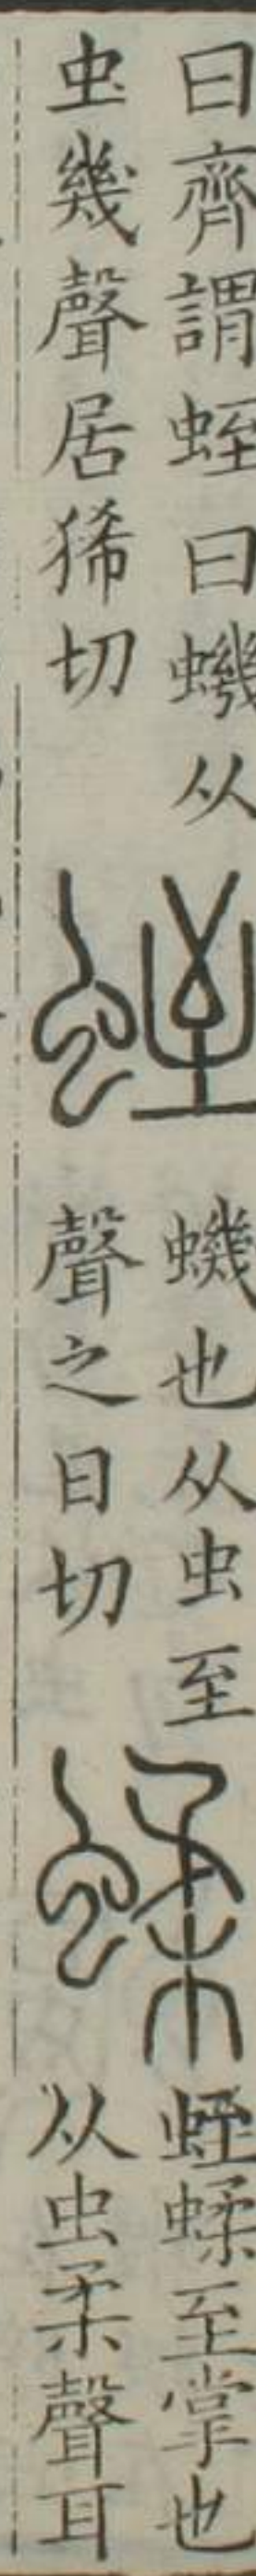 曰齊謂蛭曰蟣从
虫幾聲居狶切
蛭
蟣也从虫至
聲之日切
蝚
蛭蝚至掌也
从虫柔聲耳